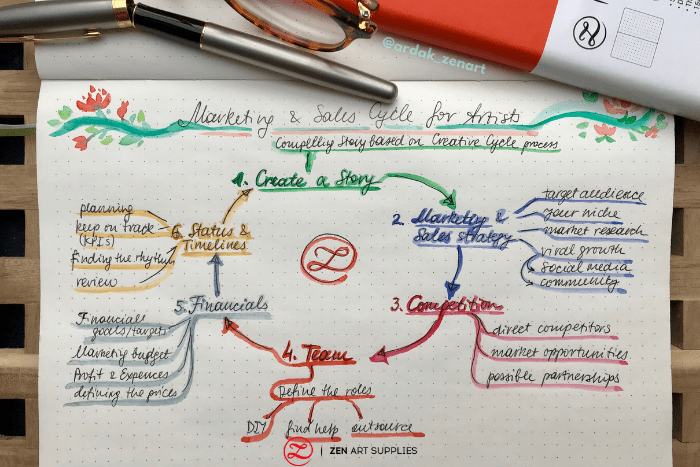 @ardak_zenart
Marketing & Sales Cycle for Artists
Compelling Story based on Creative Cycle process
1. Create a Story
2. Marketing &
Sales strategy
target audience
your niche
market research
viral growth
social media
community
3. Competition
direct competitors
market opportunities
possible partnerships
4. Team
Define the roles
DIY find help outsource
5. Financials
Financial
goals/targets
Marketing budget
Profit & Expences
defining the prices
6. Status &
Timelines
planning
keep on track
(KPIs)
finding the rhythm
review
ZEN ART SUPPLIES